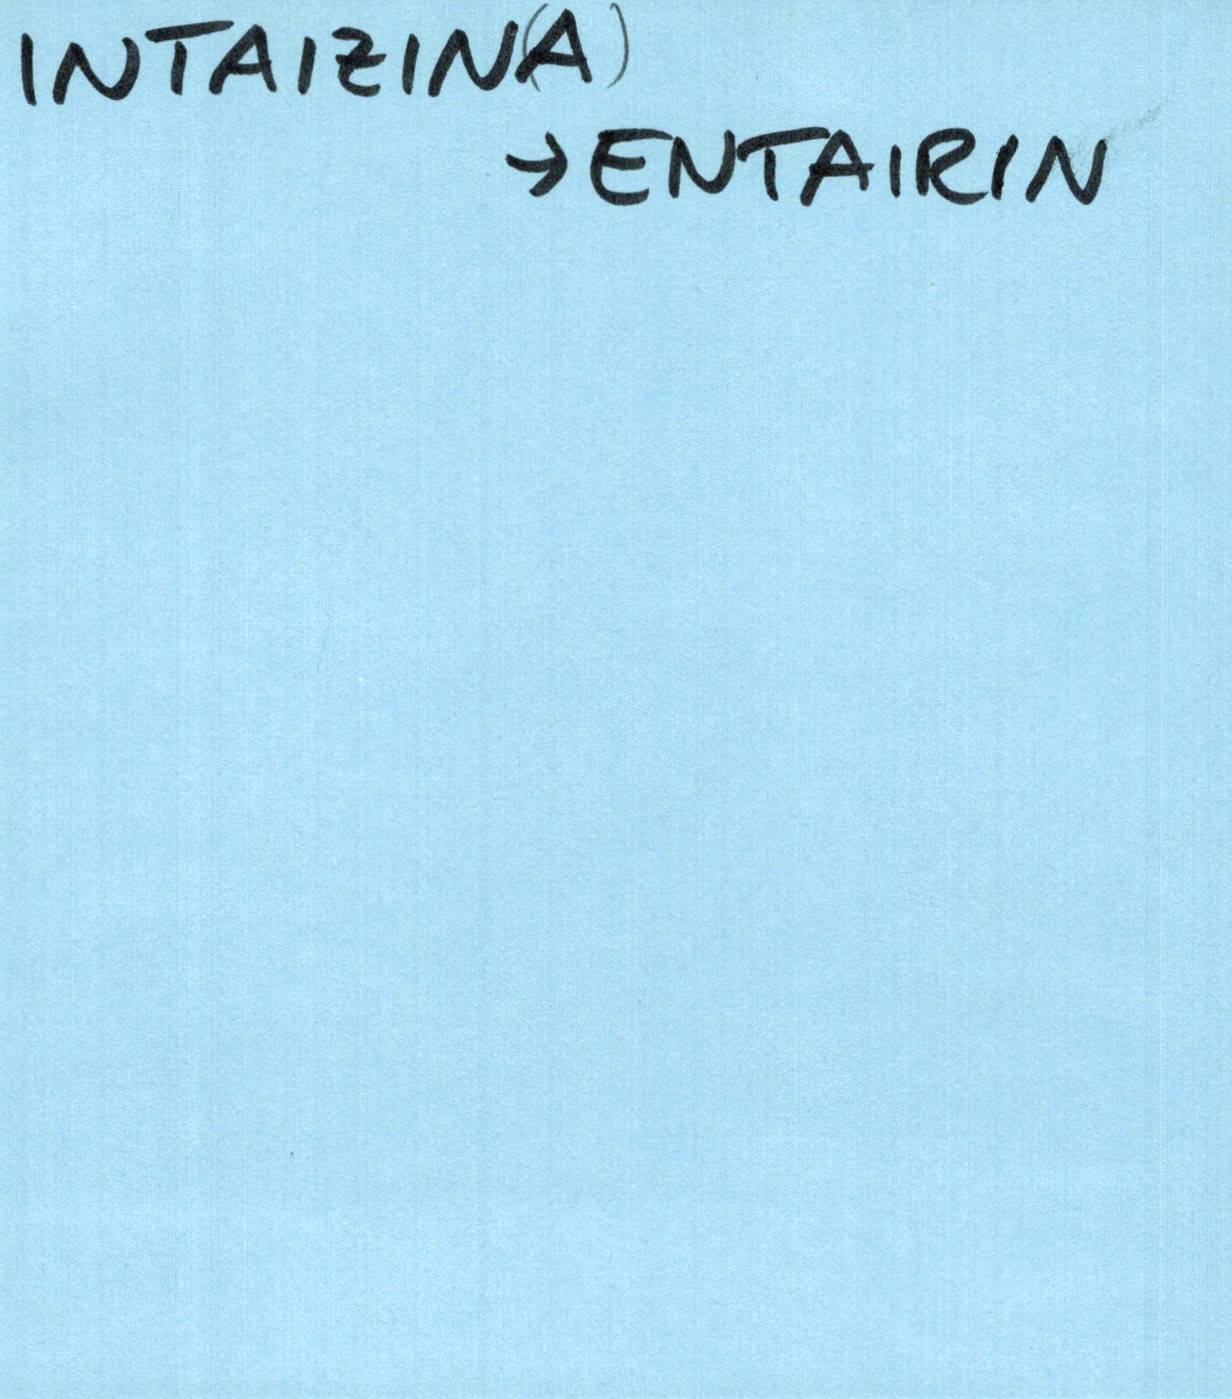 INTAIZIN(A)
→ ENTAIRIN